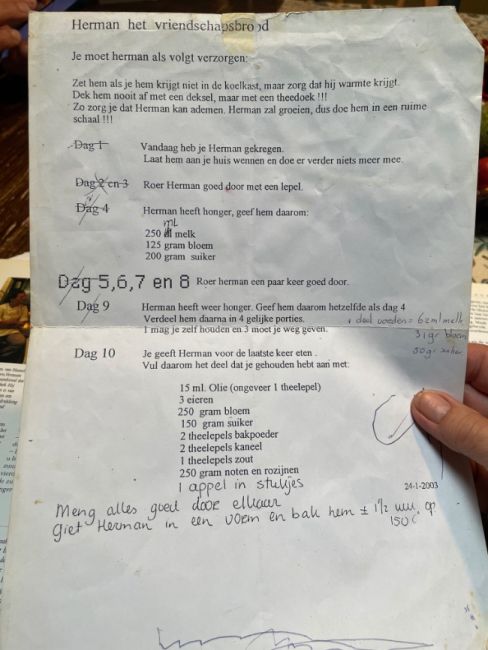 Herman het vriendschapsbrood
Je moet herman als volgt verzorgen:
Zet hem als je hem krijgt niet in de koelkast, maar zorg dat hij warmte krijgt.
Dek hem nooit af met een deksel, maar met een theedoek !!!
Zo zorg je dat Herman kan ademen. Herman zal groeien, dus doe hem in een ruime
schaal !!!
Dag 1 Vandaag heb je Herman gekregen.
Laat hem aan je huis wennen en doe er verder niets meer mee.
Dag 2 en 3 Roer Herman goed door met een lepel.
Dag 4 Herman heeft honger, geef hem daarom:
mL
250 melk
125 gram bloem
200 gram suiker
Dag 5,6,7 en 8 Roer herman een paar keer goed door.
Dag 9 Herman heeft weer honger. Geef hem daarom hetzelfde als dag 4
Verdeel hem daarna in 4 gelijke porties. 1 deel voeden = 62ml melk
1 mag je zelf houden en 3 moet je weg geven. 31gr bloem
50gr suiker
Dag 10 Je geeft Herman voor de laatste keer eten .
Vul daarom het deel dat je gehouden hebt aan met:
15 ml. Olie (ongeveer 1 theelepel)
3 eieren
250 gram bloem
150 gram suiker
2 theelepels bakpoeder
2 theelepels kaneel
1 theelepels zout
250 gram noten en rozijnen
1 appel in stukjes
24-1-2003
Meng alles goed door elkaar
Giet Herman in een vorm en bak hem ± 1½ uur op
150°C